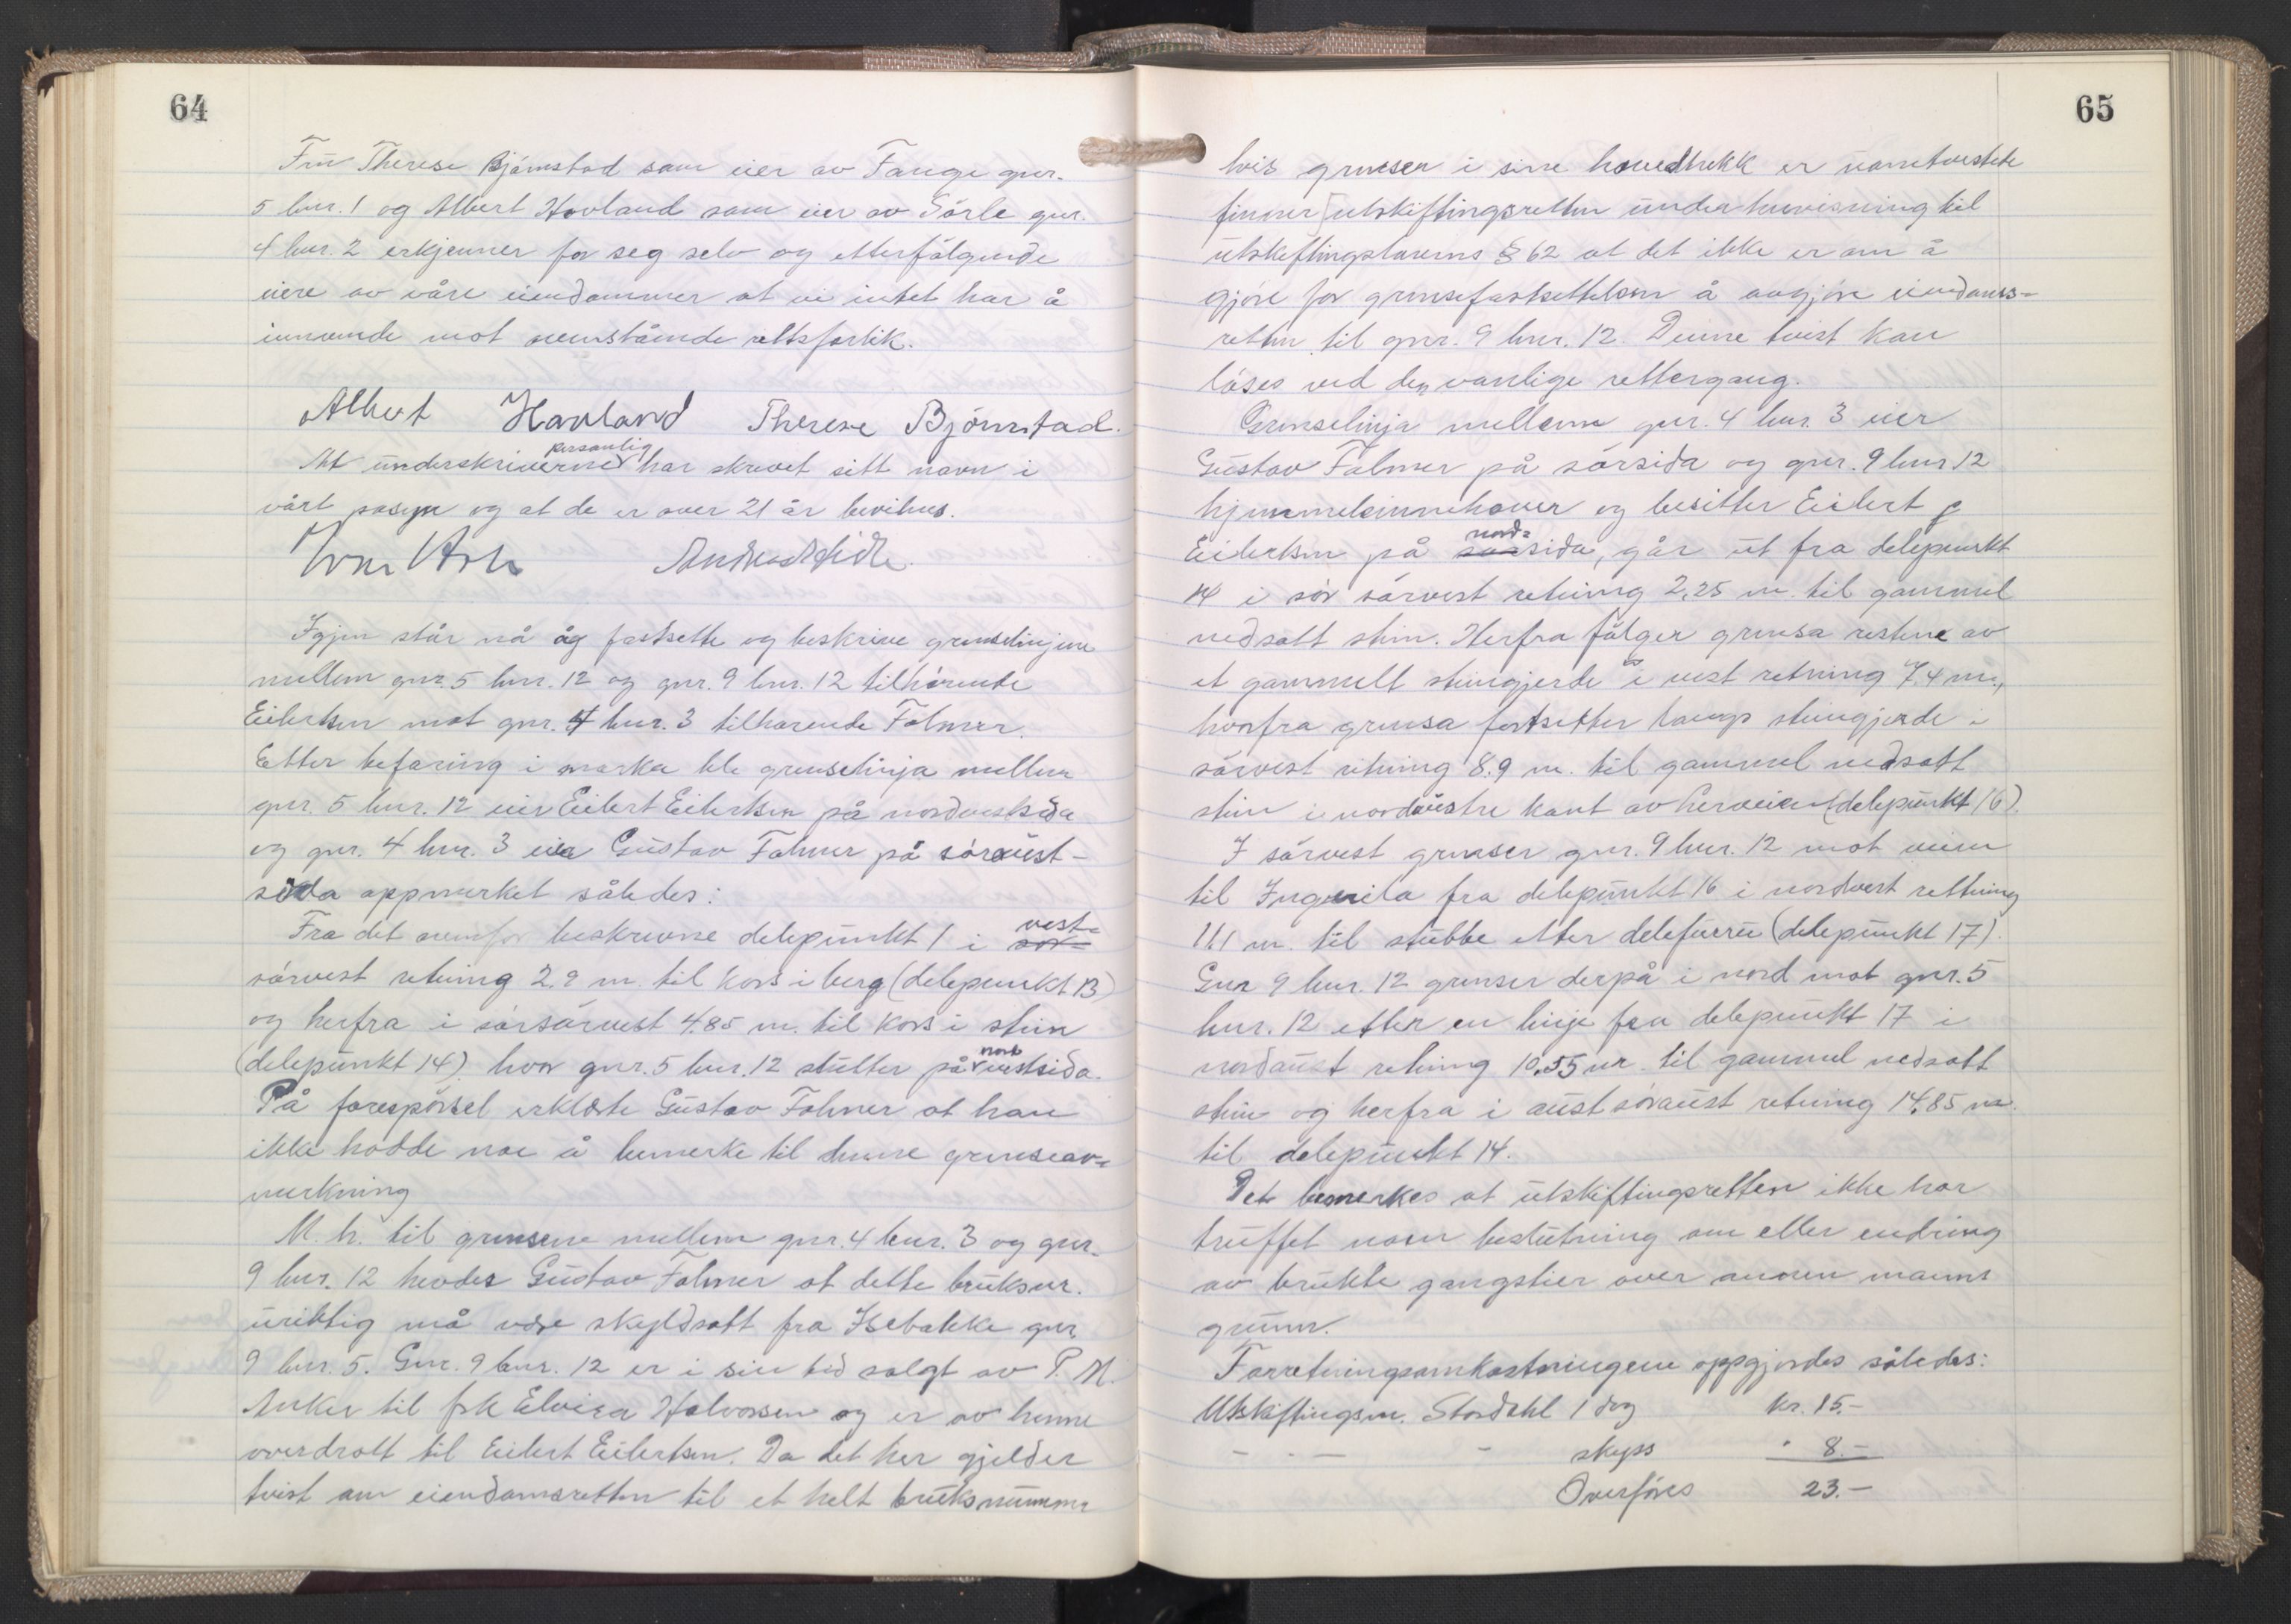 64
Fru Therese Bjørnstad som eier av Tangi gnr.
5 bnr. 1 og Albert Hovland som eier av Sørle gnr.
4 bnr. 2 erkjenner for seg selv og etterfølgende
eiere av våre eiendommer at vi intet har å
innvende mot ovenstående rettsforlik.
Albert Hovland Therese Bjørnstad.
personlig
At underskriverne har skrevet sitt navn i
vårt påsyn og at de er over 21 år bevitnes.
Igjen står nå åg fastsette og beskrive grenselinjene
mellem gnr. 5 bnr. 12 og gnr. 9 bnr. 12 tilhørende
Eilertsen mot gnr. 4 bnr. 3 tilhørende Folmer.
Etter befaring i marka ble grenselinja mellem
gnr. 5 bnr. 12 eier Eilert Eilertsen på nordvestsida
og gnr. 4 bnr. 3 eier Gustav Folmer på søraust-
sida oppmerket således:
Fra det ovenfor beskrevne delepunkt 1 i sør- vest-
sørvest retning 2,9 m. til kors i berg (delepunkt 13)
og herfra i sørsørvest 4,85 m. til kors i stein
(delepunkt 14) hvor gnr. 5 bnr. 12 slutter på nordvestsida.
På forespørsel erklærte Gustav Folmer at han
ikke hadde noe å bemerke til denne grenseav-
merkning
M. h. til grensene mellem gnr. 4 bnr. 3 og gnr.
9 bnr. 12 hevder Gustav Folmer at dette bruksnr.
uriktig må være skyldsatt fra Isebakke gnr.
9 bnr. 5. Gnr. 9 bnr. 12 er i sin tid solgt av P. M.
Anker til frk Elvira Halvorsen og er av henne
overdratt til Eilert Eilertsen. Da det her gjelder
tvist om eiendomsretten til et helt bruksnummer
65
hvis grenser i sine hovedtrekk er uomtvistete
finner utskiftingsretten under henvisning til
utskiftingslovens § 62 at det ikke er om å
gjøre for grensefastsettelsen å avgjøre eiendoms-
retten til gnr. 9 bnr. 12. Denne tvist kan
løses ved den vanlige rettergang.
Grenselinja mellem gnr. 4 bnr. 3 eier
Gustav Folmer på sørsida og gnr. 9 bnr 12
hjemmelsinnehaver og besitter Eilert
Eilertsen på sør nord-sida, går ut fra delepunkt
14 i sør sørvest retning 2,25 m. til gammel
nedsatt stein. Herfra følger grensa restene av
et gammelt steingjerde i vest retning 7,4 m.,
hvorfra grensa fortsetter langs steingjerde i
sørvest retning 8,9 m. til gammel nedsatt
stein i nordaustre kant av herveien (delepunkt 16).
I sørvest grenser gnr. 9 bnr. 12 mot veien
til fra delepunkt 16 i nordvest retning
11,1 m. til stubbe etter delefuru (delepunkt 17).
Gnr 9 bnr. 12 grenser derpå i nord mot gnr. 5
bnr. 12 etter en linje fra delepunkt 17 i
nordaust retning 10,55 m. til gammel nedsatt
stein og herfra i aust søraust retning 14,85 m.
til delepunkt 14.
Det bemerkes at utskiftingsretten ikke har
truffet noen beslutning om eller endring
av brukte gangstier over annen manns
grunn.
Forretningsomkostningene oppgjordes således:
Utskiftingsm. Stordahl 1 dag kr. 15.-
- - - - skyss " 8.-
Overføres 23.-